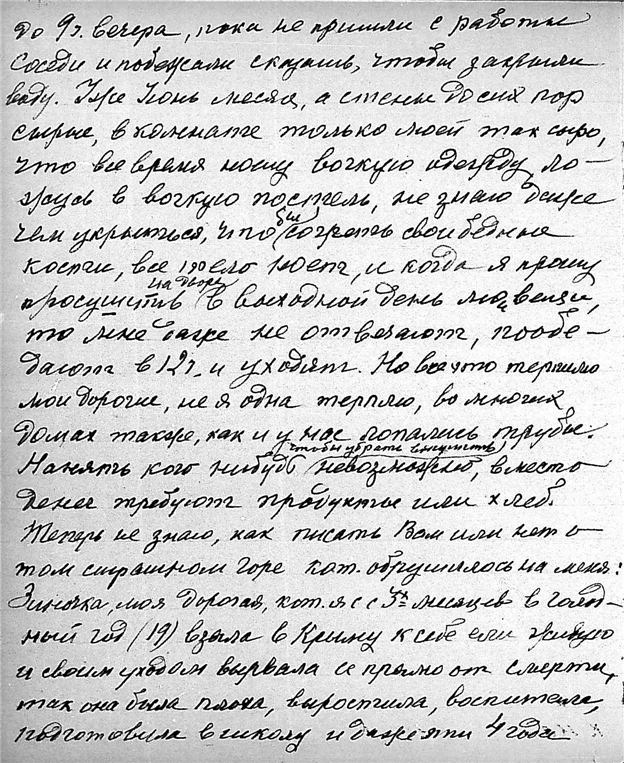 до 9 г. вечера, пока не пришли с работы
соседи и побежали сказать, чтобы закрыли
воду. Уже Июнь месяц, а стены до сих пор
сырые, в комнате только моей так сыро,
что все время ношу вогкую одежду, ло-
жусь в вогкую постель, не знаю даже
чем укрыться, чтобы согреть свои бедные
кости, все тело ноет, и когда я прошу
просушить на дворе в выходной день мои вещи,
то мне даже не отвечают, пообе-
дают в 12 г. и уходят. Но все это терплю
мои дорогие, не я одна терплю, во многих
домах также, как и у нас попались трубы.
Нанять кого нибудь (чтобы убрать вынести) невозможно, вместо
денег требуют продукты или хлеб.
Теперь не знаю, как писать Вам или нет о
том страшном горе кот. обрушилось на меня:
Зиночка, моя дорогая, кот. я с 5х месяцев в голод-
ный год (19) взяла в Крыму к себе еле живую
и своим уходом вырвала ее прямо от смерти,
так она была плоха, выростила, воспитала,
подготовила в школу и даже эти 4 года